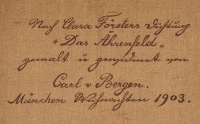 Nach Clara Försters Dichtung
"Das Ährenfeld"
gemalt u gewidmet von
Carl v Bergen.
München Weihnachten 1903.